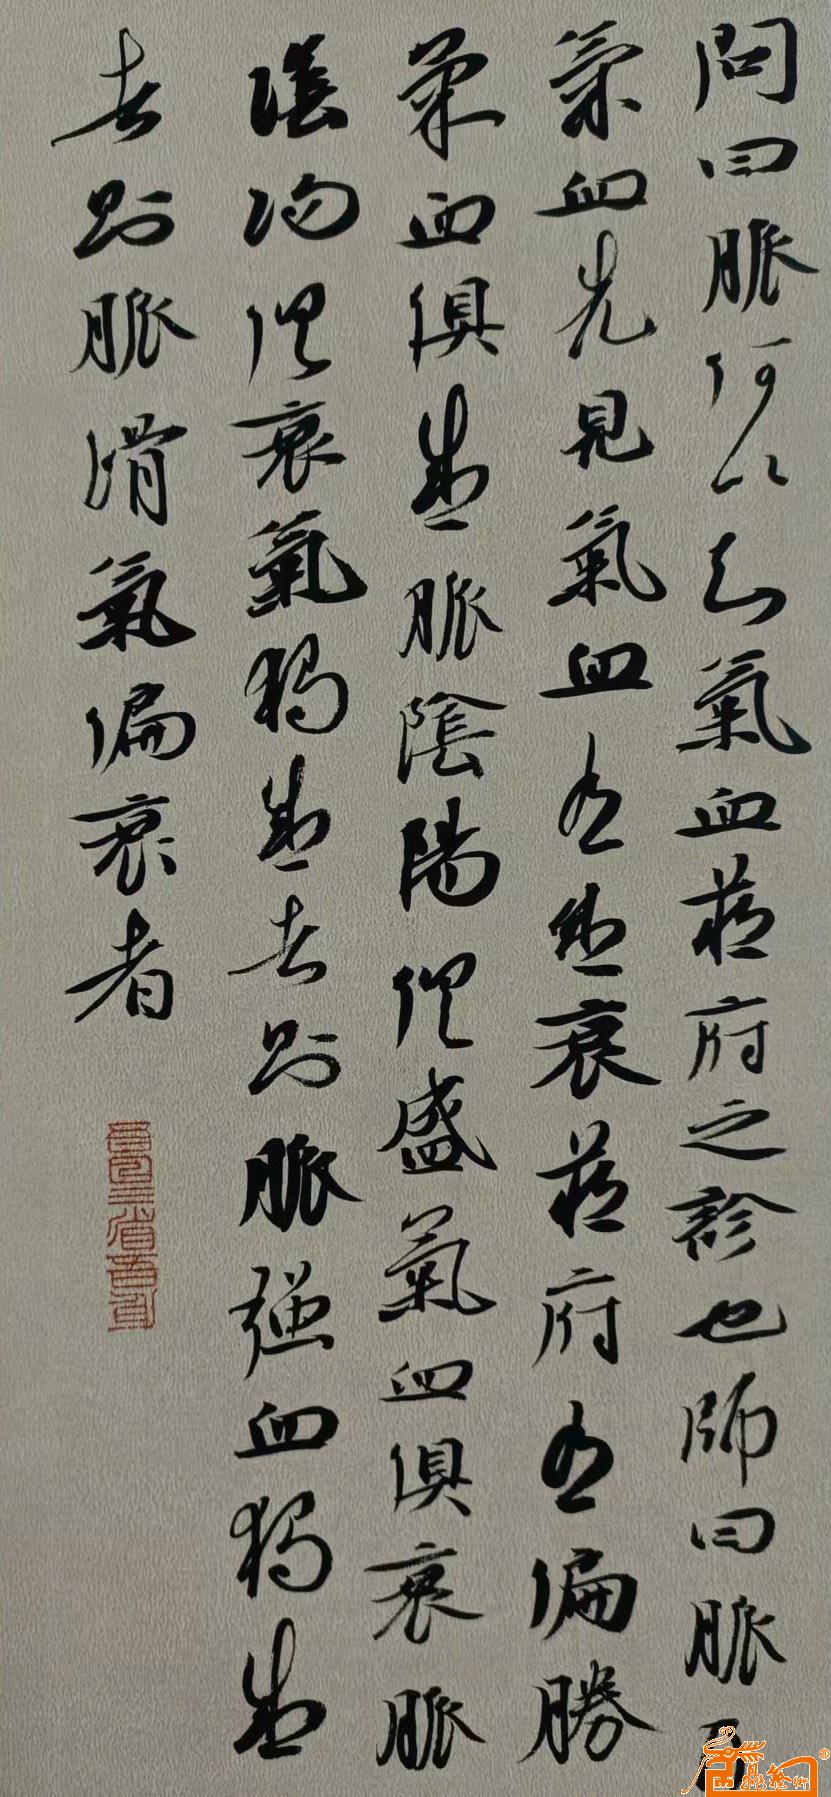 問曰脈何以知氣血藏府之診也師曰脈乃
氣血先見氣血有盛衰藏府有偏勝
氣血俱盛脈陰陽俱盛氣血俱衰脈
陰陽俱衰氣獨盛者則脈強血獨盛
者則脈滑氣偏衰者